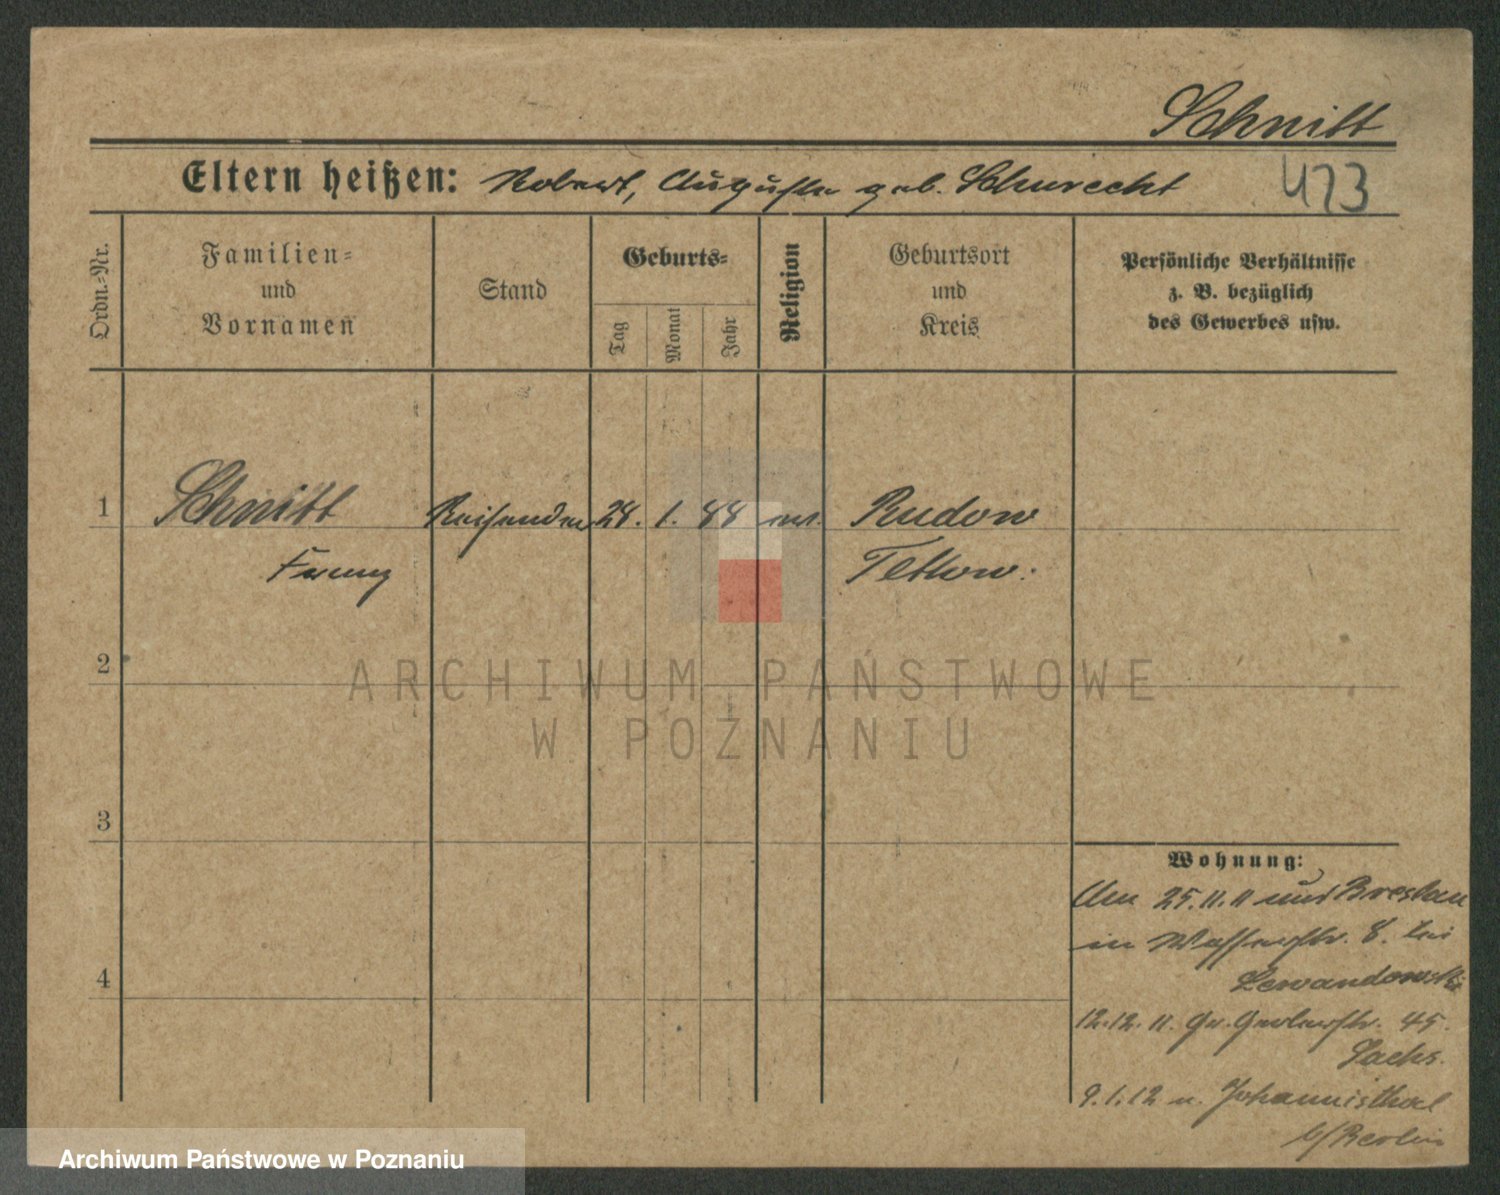 Schnitt
Eltern heißen: Robert, Auguste geb. Schurecht
473
Ordn.-Nr.
Familien-
und
Vornamen
Stand
Geburts-
Tag
Monat
Jahr
Religion
Geburtsort
und
Kreis
Persönliche Verhältnisse
z. B. bezüglich
des Gewerbes usw.
1
Schnitt Reisender 28. 1. 88 ev. Rudow
Franz Teltow.
2
ARCHIWUM PAŃSTWOWE
W POZNANIU
3
Wohnung:
Am 25.11.11 aus Breslau
in Wasserstr. 8. bei
Lewandowski
12.12.11. Gr. Gerberstr. 45.
Sachs.
4
9.1.12 n. Johannisthal
b/Berlin
Archiwum Państwowe w Poznaniu